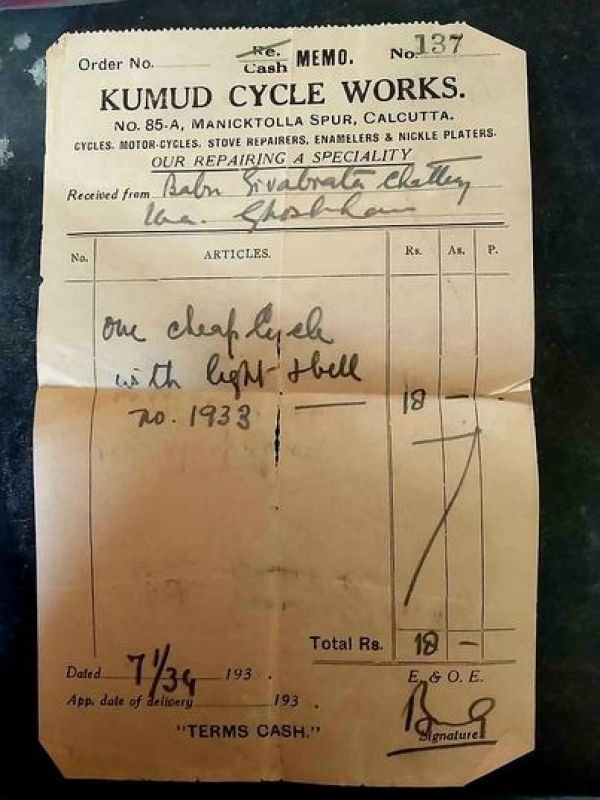 Order No.
Re.
Cash MEMO. No. 137
KUMUD CYCLE WORKS.
NO. 85-A, MANICKTOLLA SPUR, CALCUTTA.
CYCLES, MOTOR-CYCLES, STOVE REPAIRERS, ENAMELERS & NICKLE PLATERS.
OUR REPAIRING A SPECIALITY
Received from Babu Sivabrata
No. ARTICLES. Rs. As. P.
one cheap Cycle
with light & bell
no. 1933 — 18 —
Total Rs. 18 —
Dated 7/1/39 193 .
E. & O. E.
App. date of delivery 193 .
"TERMS CASH."
Signature